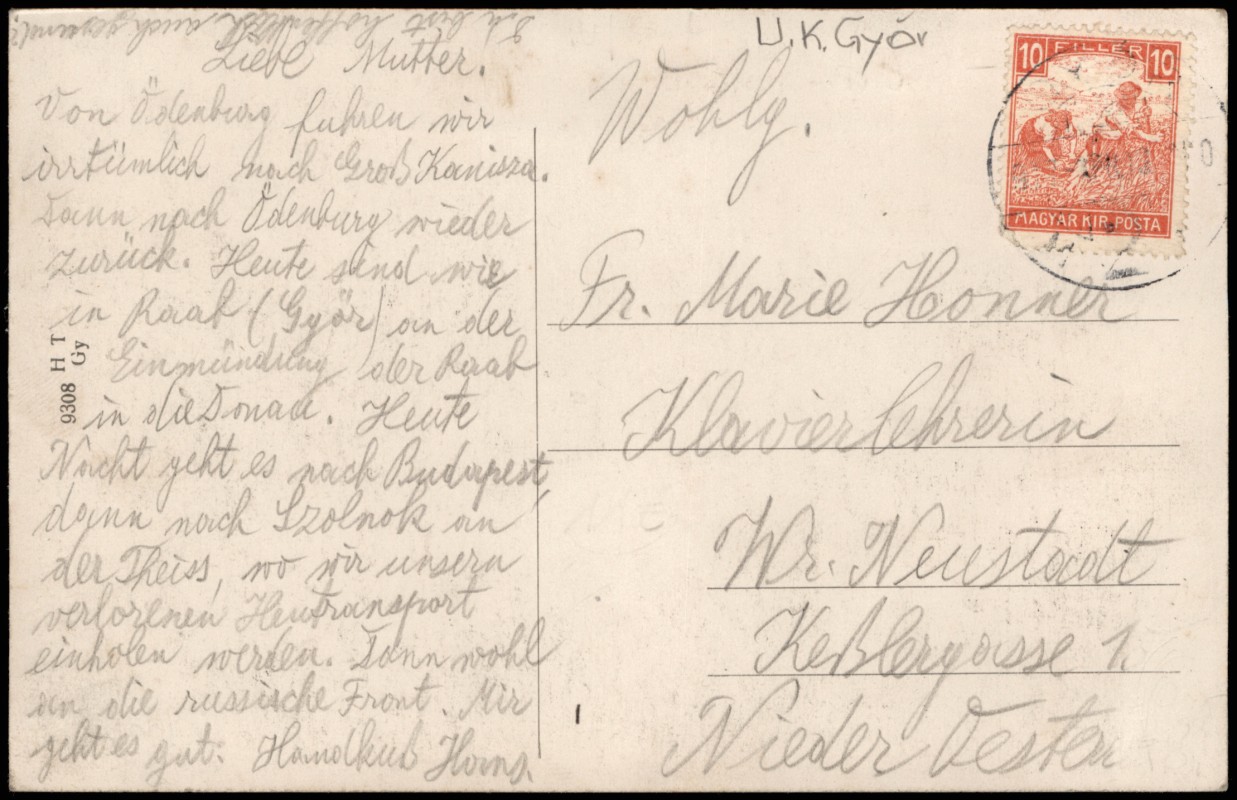 Du bist hoffentlich auch gesund.
Liebe Mutter.
Von Ödenburg fuhren wir
irrtümlich nach Groß Kanisza.
Dann nach Ödenburg wieder
zurück. Heute sind wir
in Raab (Györ) an der
Einmündung der Raab
in die Donau. Heute
Nacht geht es nach Budapest,
dann nach Szolnok an
der Theiss, wo wir unsern
verlorenen Heutransport
einholen werden. Dann wohl
an die russische Front. Mir
geht es gut. Handkuß Hans.
9308 H T
Gy
U.K. Győr
10 FILLÉR 10
MAGYAR KIR. POSTA
Wohlg.
Fr. Marie Honner
Klavierlehrerin
Wr. Neustadt
Keßlergasse 1.
Nieder Oesterr